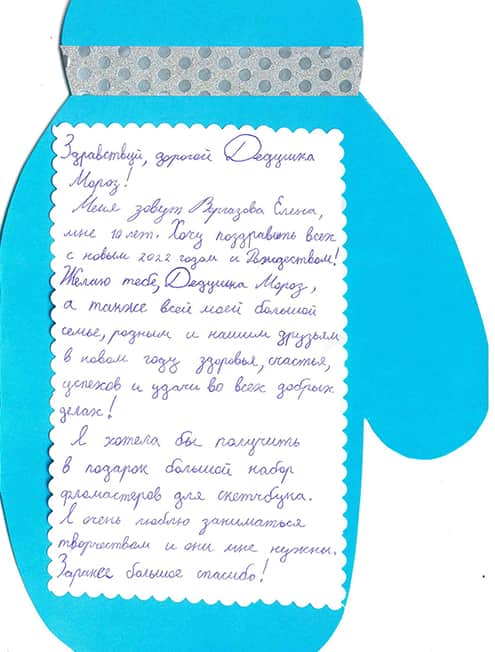 Здравствуй, дорогой Дедушка
Мороз!
Меня зовут Вергазова Елена,
мне 10 лет. Хочу поздравить всех
с новым 2022 годом и Рождеством!
Желаю тебе, Дедушка Мороз,
а также всей моей большой
семье, родным и нашим друзьям
в новом году здоровья, счастья,
успехов и удачи во всех добрых
делах!
Я хотела бы получить
в подарок большой набор
фломастеров для скетчбука.
Я очень люблю заниматься
творчеством и они мне нужны.
Заранее большое спасибо!